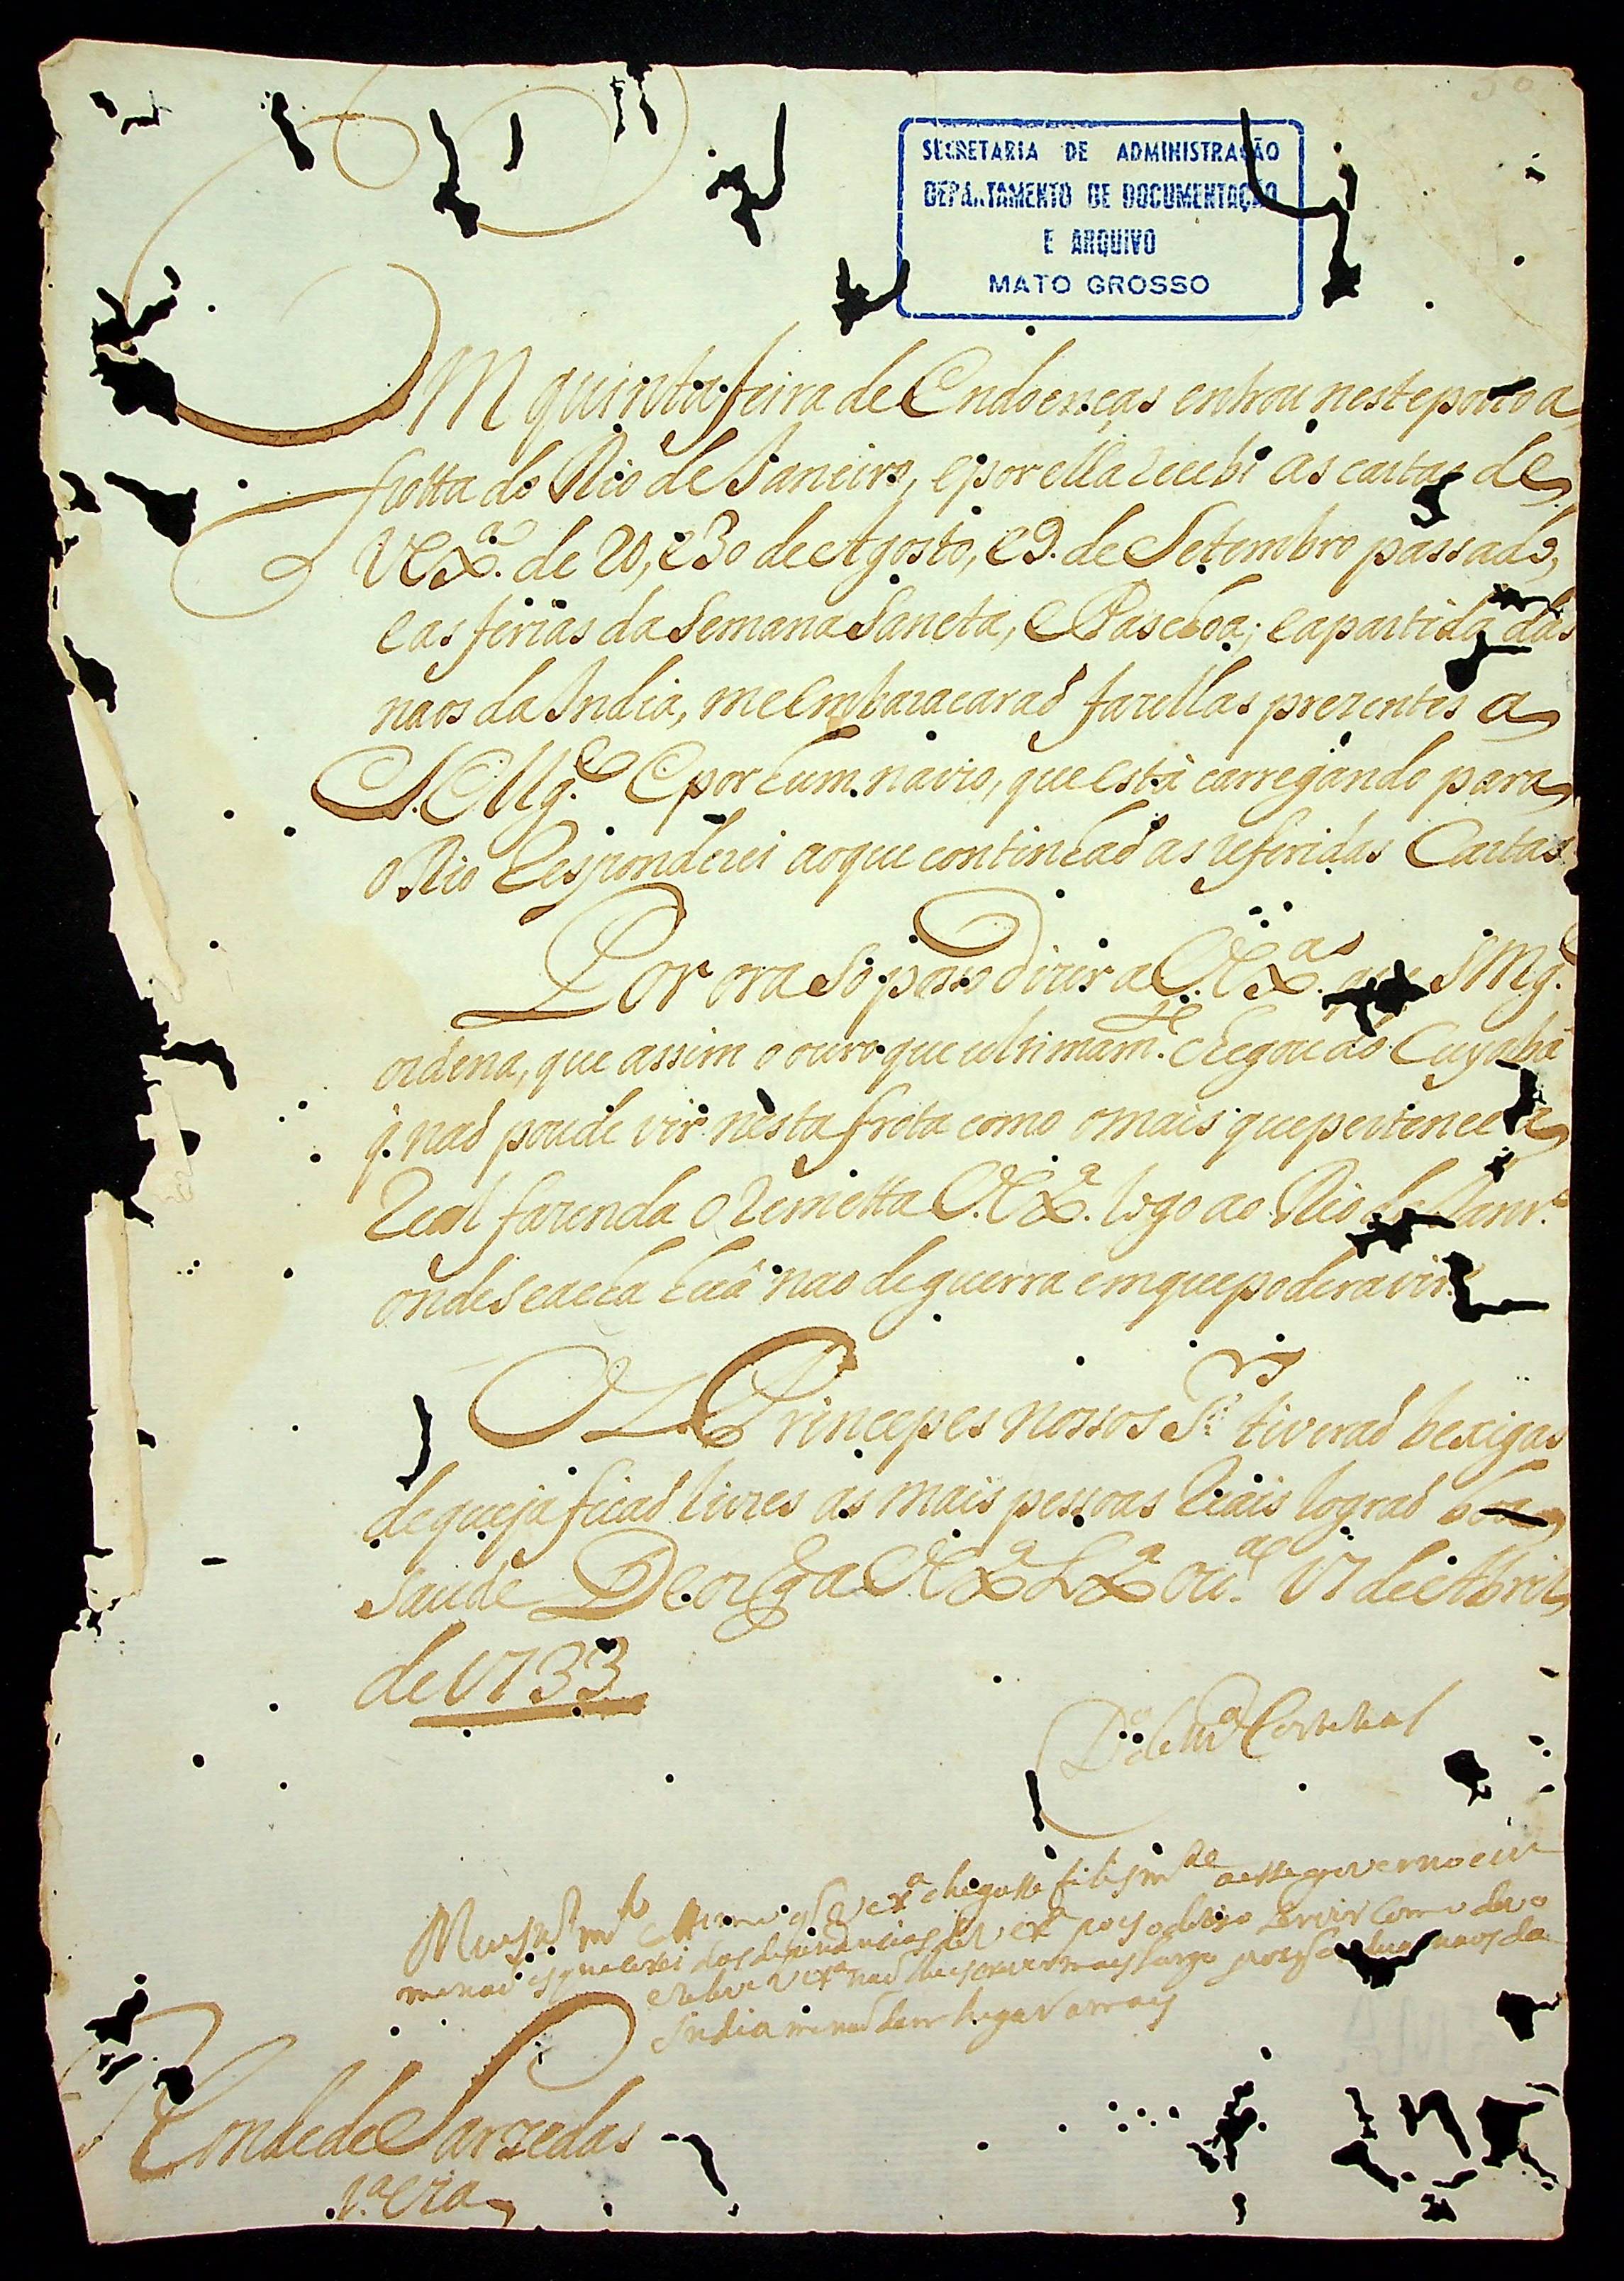 50
SECRETARIA DE ADMINISTRAÇÃO
DEPARTAMENTO DE DOCUMENTAÇÃO
E ARQUIVO
MATO GROSSO
EM quinta feira de Endoenças entrou neste porto a
frotta do Rio de Janeiro, e por ella recebi as cartas de
V Ex.ª de 20, e 30 de Agosto, e 9. de Setembro passado,
e as ferias da Semana Sancta, e Paschoa; e a partida das
naos da India, me embaraçaraõ fazellas prezentes a
S. Mg.de E por hum navio, que està carregando para
o Rio responderei ao que continhaõ as referidas Cartas.
Por ora só posso dizer a V. Ex.ª que S Mg.de
ordena, que assim o ouro que ultimam.te chegou do Cuyabá
q. naõ poude vir nesta frota como o mais que pertence a
Real fazenda o remetta V. Ex.ª logo ao Rio de Janr.º
onde se acha hũa nao de guerra em que poderá vir.
Os Princepes nossos S.rs tiveraõ bexigas
de que ja ficaõ livres as mais pessoas Reais lograõ boa
saude Deos g.e a V Ex.ª Lx.ª occ.al 17 de Abril
de 1733
D.º de M.ça Corte Real
Meu S.r m.to estimo q V Ex.ª chegasse felism.te a esse governo e eu
me naõ esquecerei das dependencias de V Ex.ª pois o dezejo servir como devo
e releve V Ex.ª naõ lhe escrever mais largo porque as naos da
India me naõ dam lugar a mais
S.r Conde de Sarzedas
1.ª via